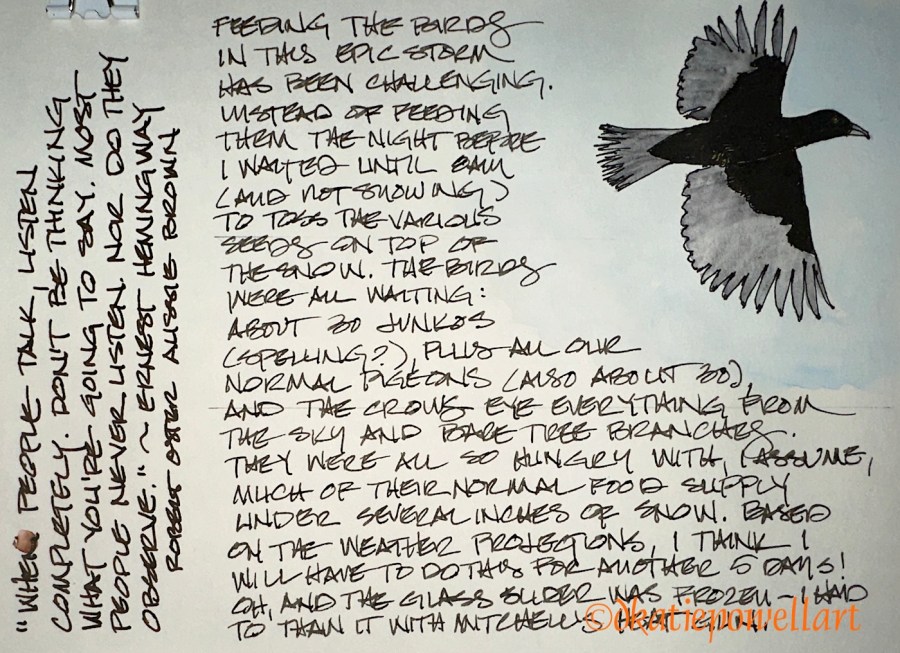 "WHEN PEOPLE TALK, LISTEN
COMPLETELY. DON'T BE THINKING
WHAT YOU'RE GOING TO SAY. MOST
PEOPLE NEVER LISTEN. NOR DO THEY
OBSERVE." ~ ERNEST HEMINGWAY
ROBERT OSTER AUSSIE BROWN
FEEDING THE BIRDS
IN THIS EPIC STORM
HAS BEEN CHALLENGING.
INSTEAD OF FEEDING
THEM THE NIGHT BEFORE
I WAITED UNTIL 8AM
(AND NOT SNOWING)
TO TOSS THE VARIOUS
SEEDS ON TOP OF
THE SNOW. THE BIRDS
WERE ALL WAITING:
ABOUT 30 JUNKOS
(SPELLING?), PLUS ALL OUR
NORMAL PIGEONS (ALSO ABOUT 30),
AND THE CROWS EYE EVERYTHING FROM
THE SKY AND BARE TREE BRANCHES.
THEY WERE ALL SO HUNGRY WITH, I ASSUME,
MUCH OF THEIR NORMAL FOOD SUPPLY
UNDER SEVERAL INCHES OF SNOW. BASED
ON THE WEATHER PROJECTIONS, I THINK I
WILL HAVE TO DO THIS FOR ANOTHER 5 DAYS!
OH, AND THE GLASS SLIDER WAS FROZEN ~ I HAD
TO THAN IT WITH MITCHELL'S HEAT GUN.
©dkatiepowellart